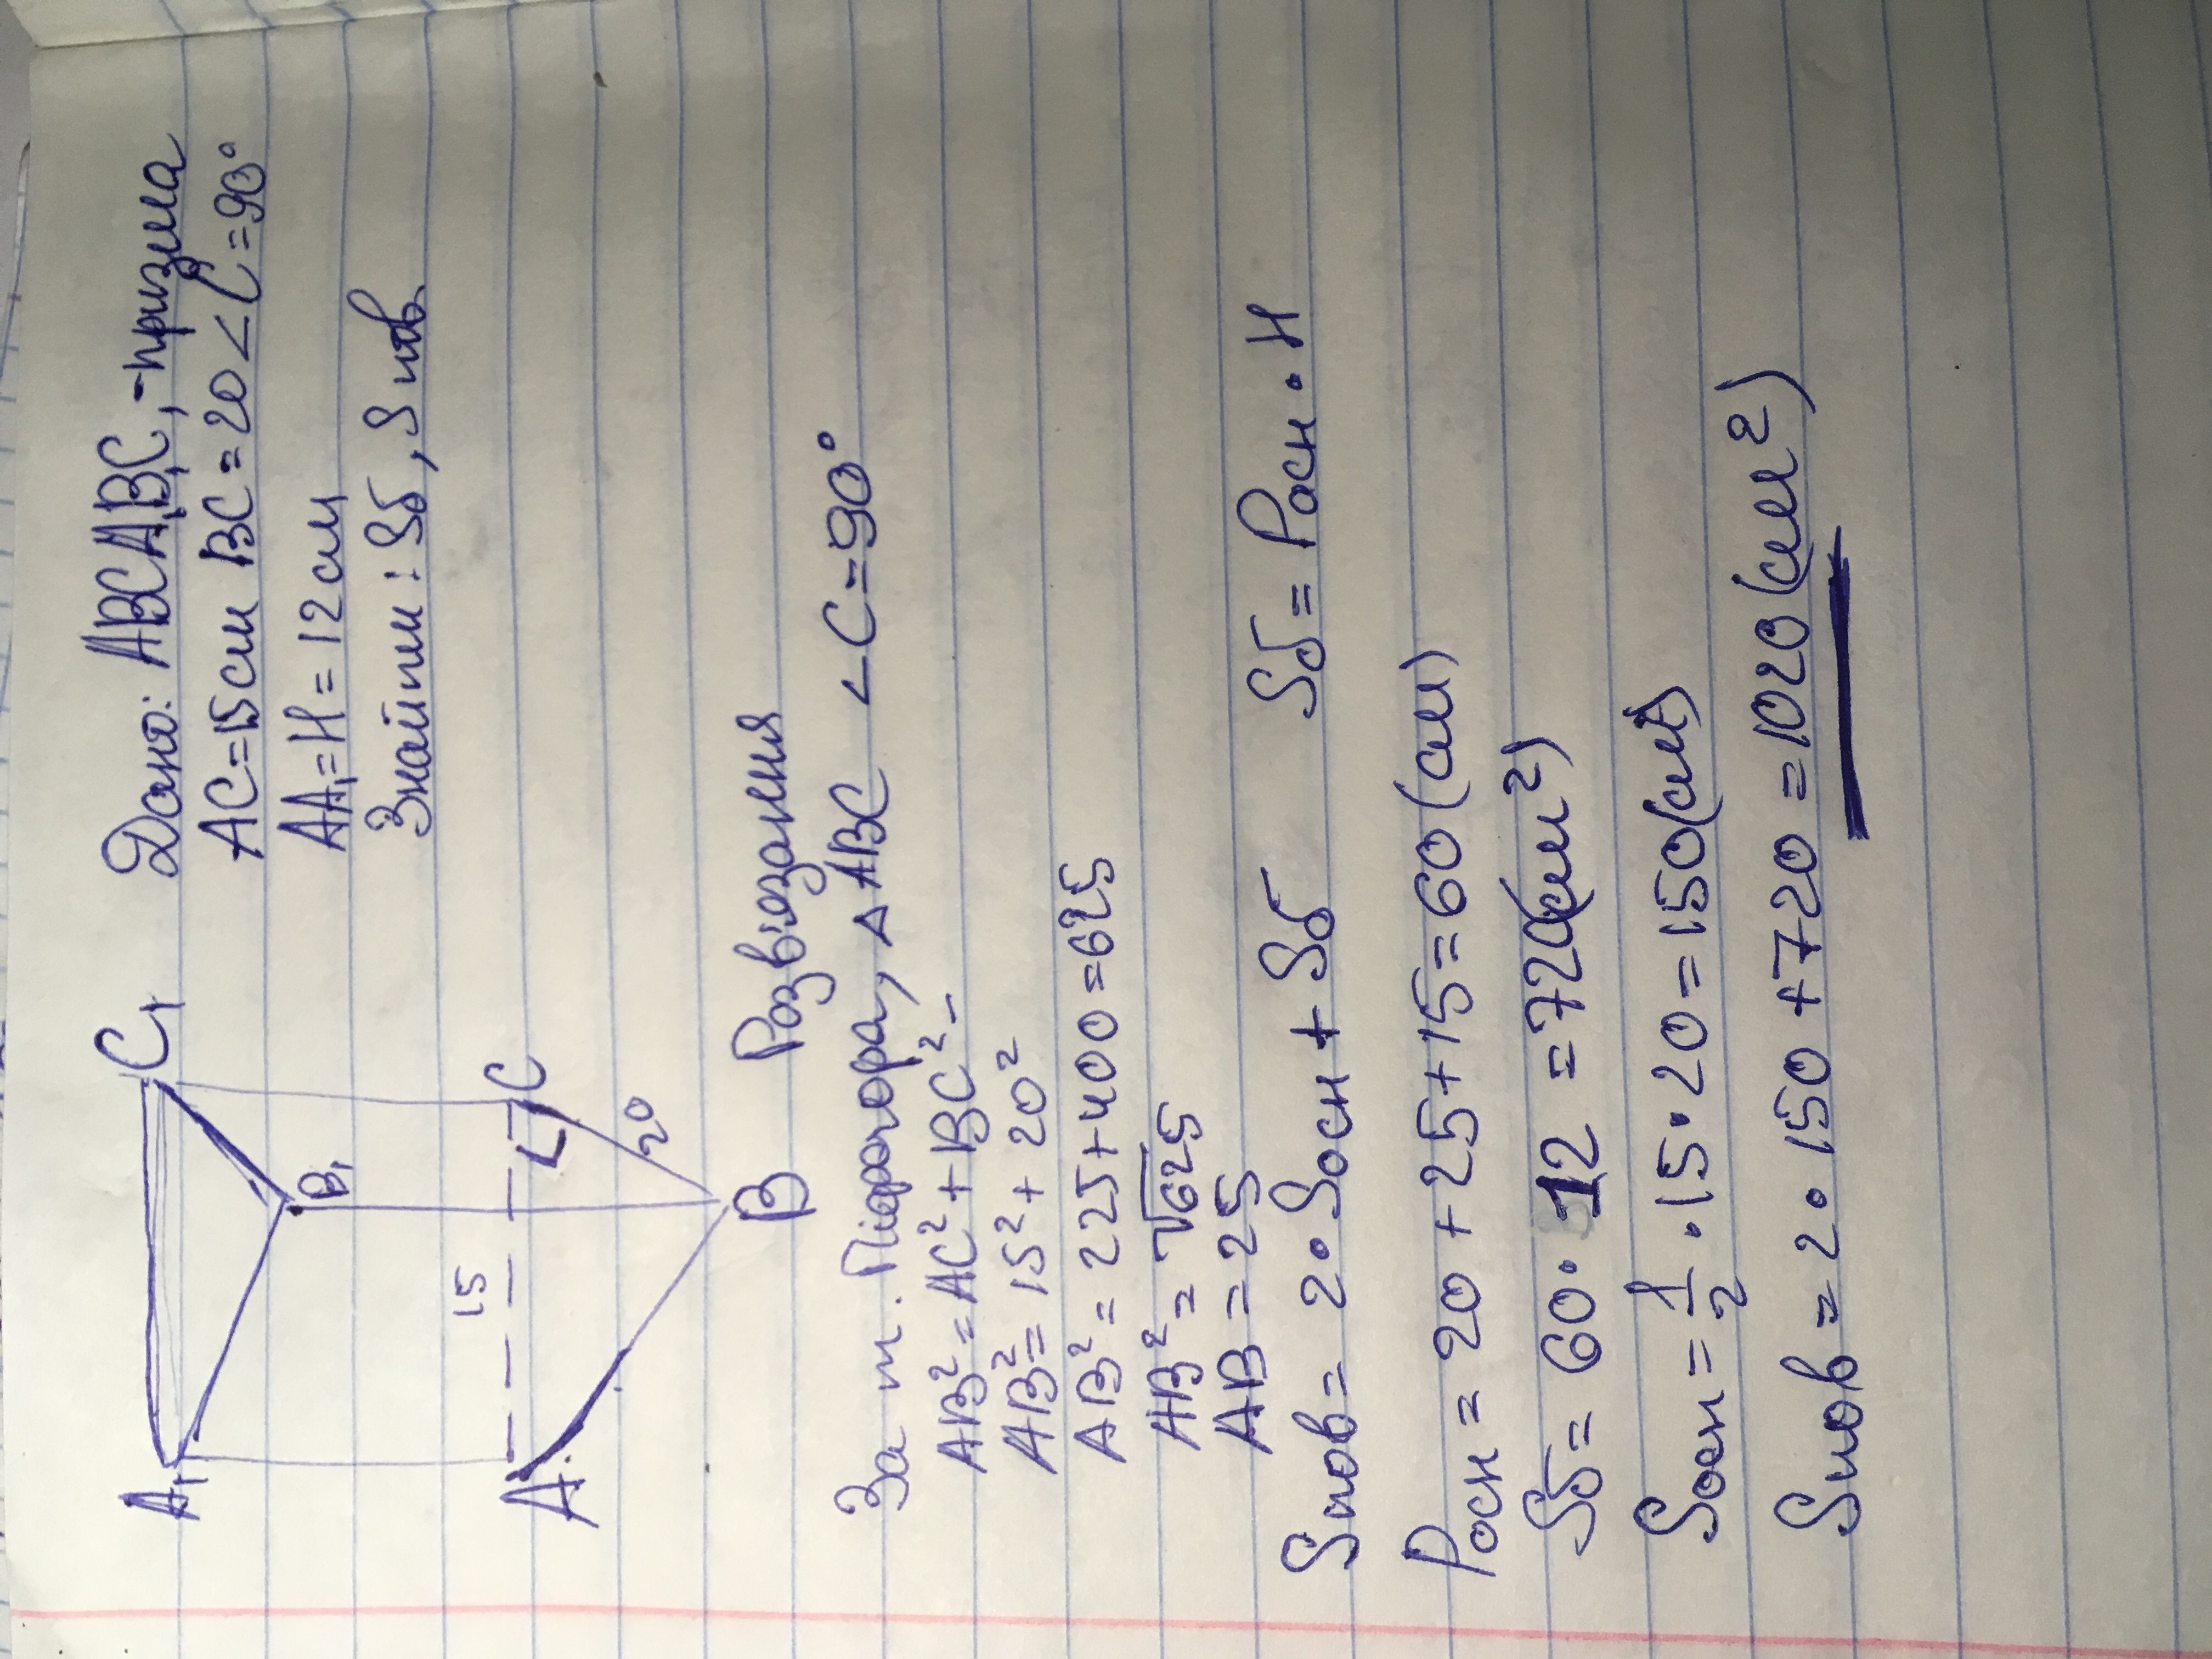 Дано: ABCA₁B₁C₁ - призма
AC=15см BC=20 <C=90°
AA₁=H=12см
Знайти: Sб, Sпов
A₁ C₁
B₁
15
A C
20
B
Розвізання
За т. Піфагора, ΔABC <C=90°
AB²=AC²+BC²-
AB²=15²+20²
AB²=225+400=625
AB²=√625
AB=25
Sпов=2•Sосн+Sб Sб=Pосн•H
Pосн=20+25+15=60(см)
Sб=60•12=720(см²)
Sосн=1/2•15•20=150(см²)
Sпов=2•150+720=1020(см²)